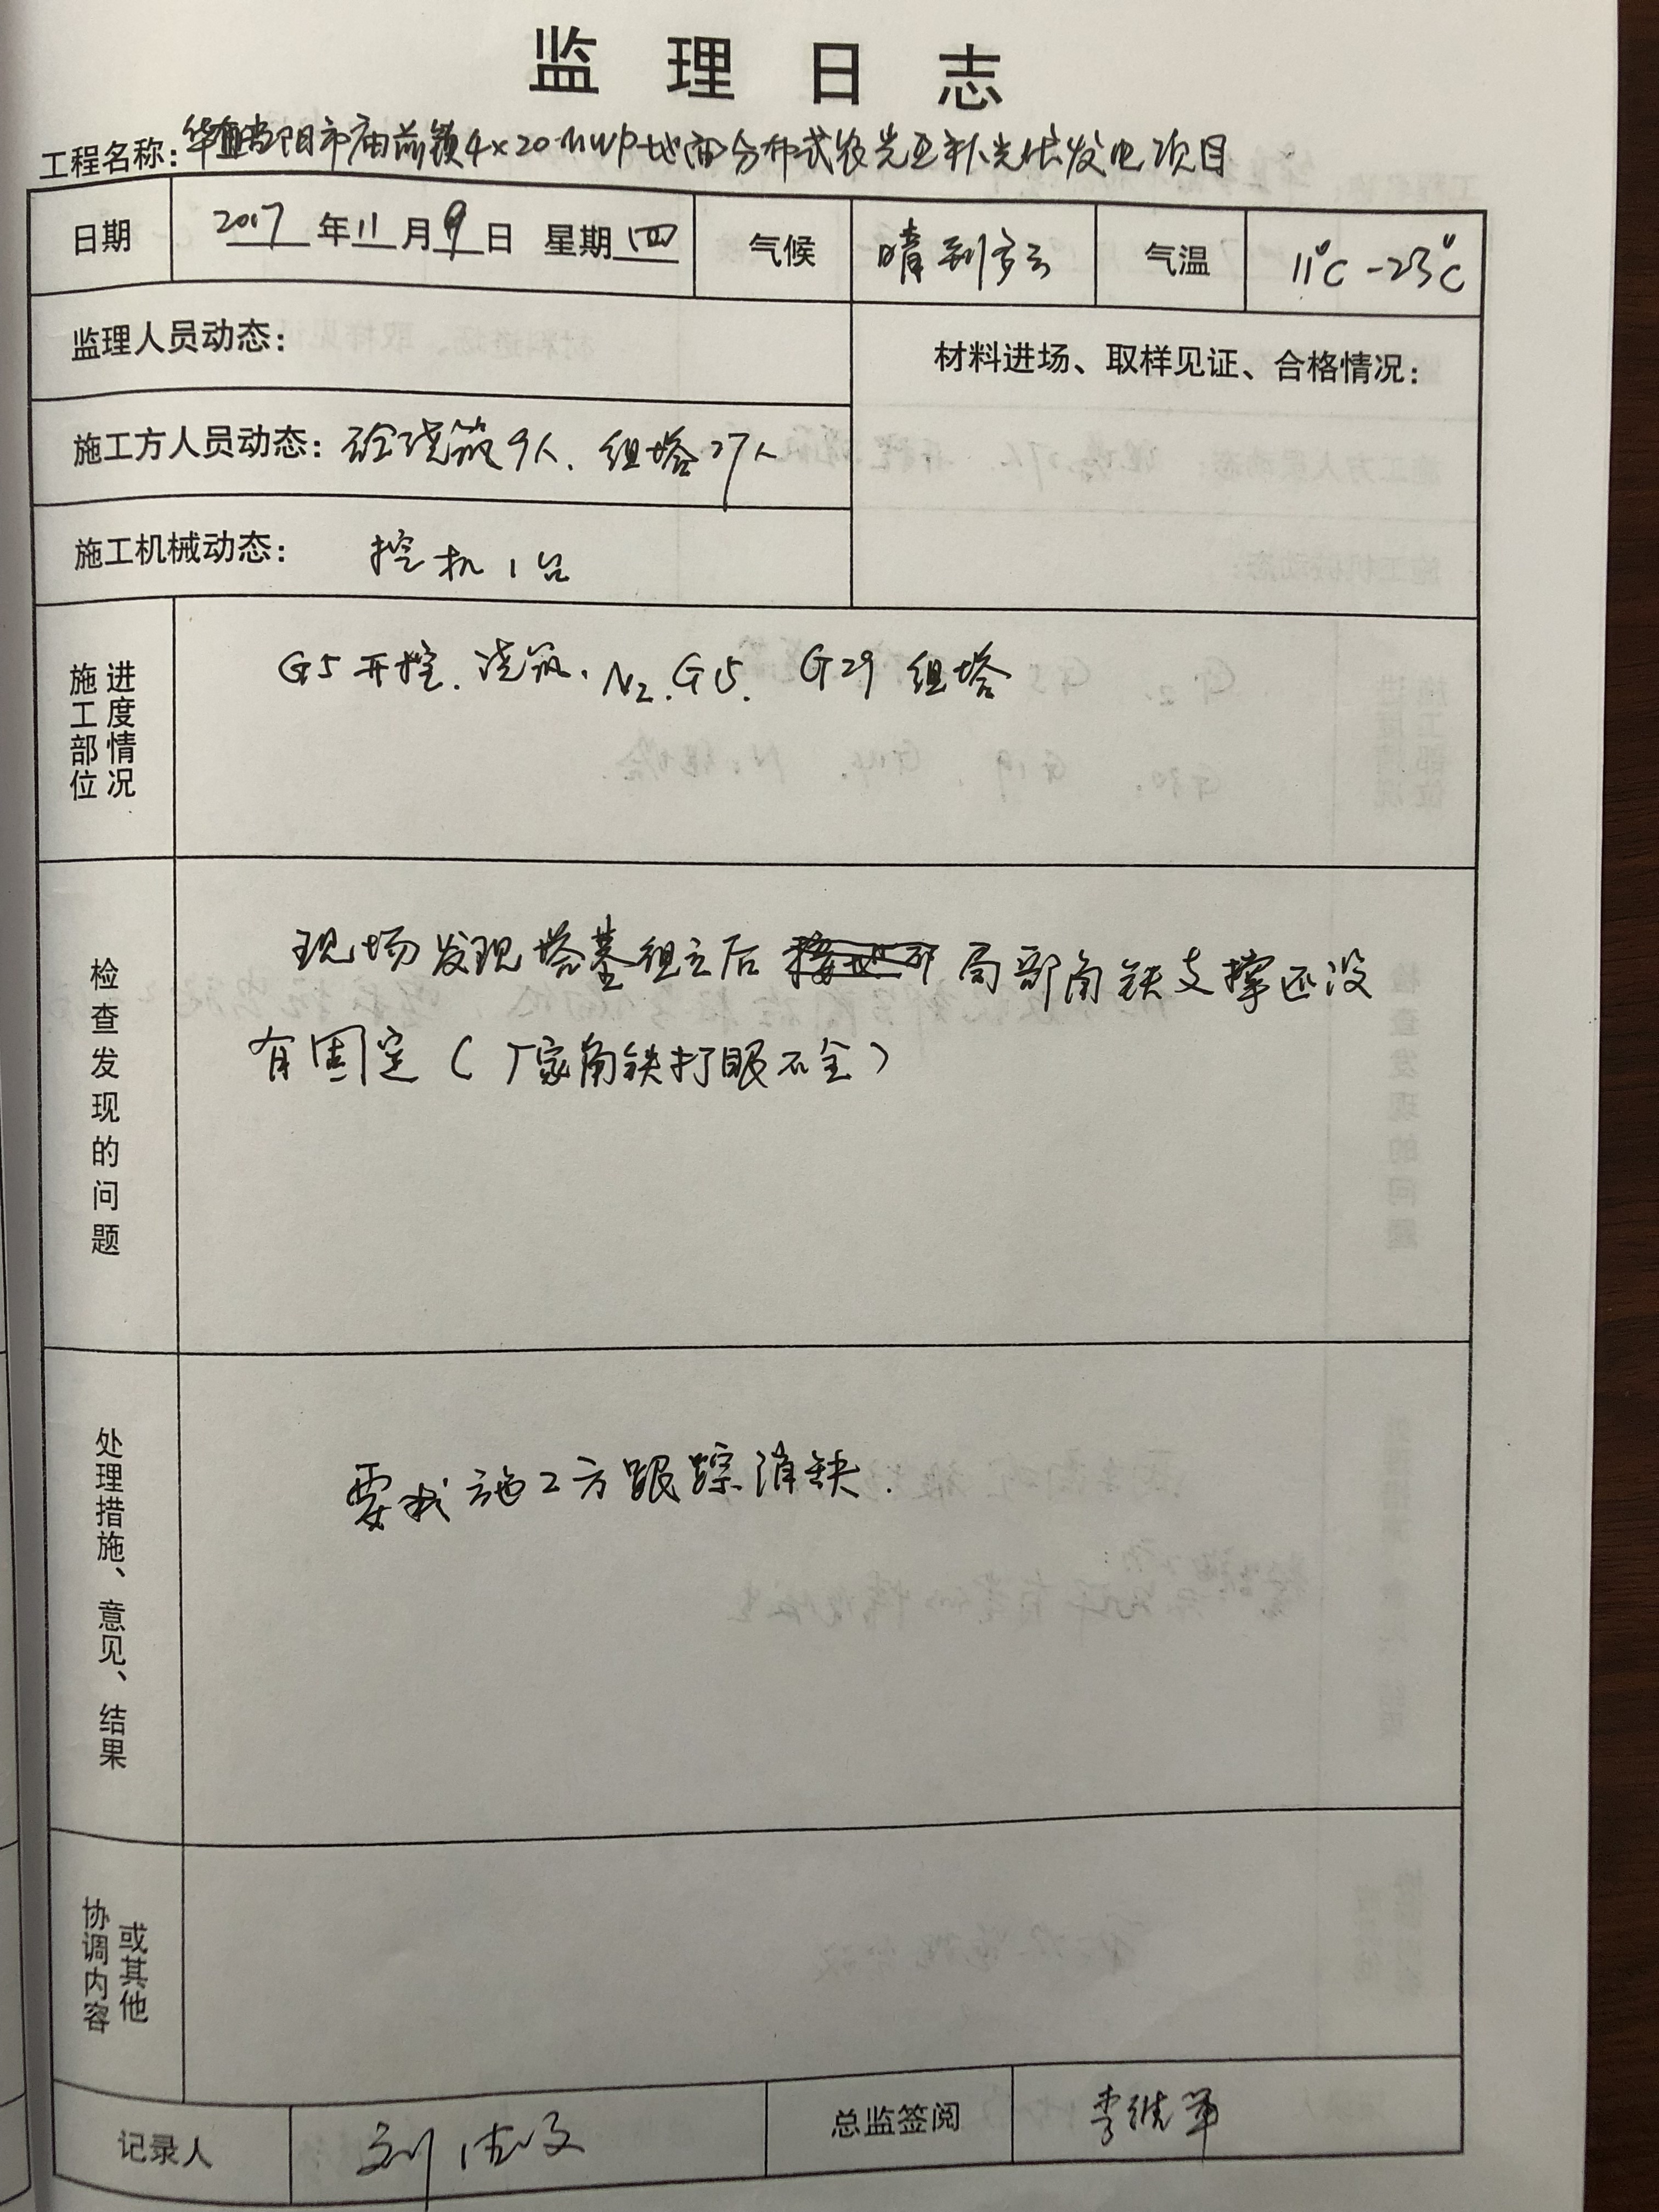 监理日志
工程名称:华盛当阳市庙前镇4×20MWP地面分布式农光互补光伏发电项目
日期 2017年11月9日 星期四 气候 晴到多云 气温 11℃-23℃
监理人员动态: 材料进场、取样见证、合格情况:
施工方人员动态: 砼浇筑9人、组塔27人
施工机械动态: 挖机1台
施工部位进度情况 G5开挖、浇筑、N2、G15、G29组塔
检查发现的问题 现场发现塔基组立后局部角铁支撑还没
有固定(厂家角铁打眼不全)
处理措施、意见、结果 要求施工方跟踪消缺.
协调内容或其他
记录人 刘 总监签阅 李